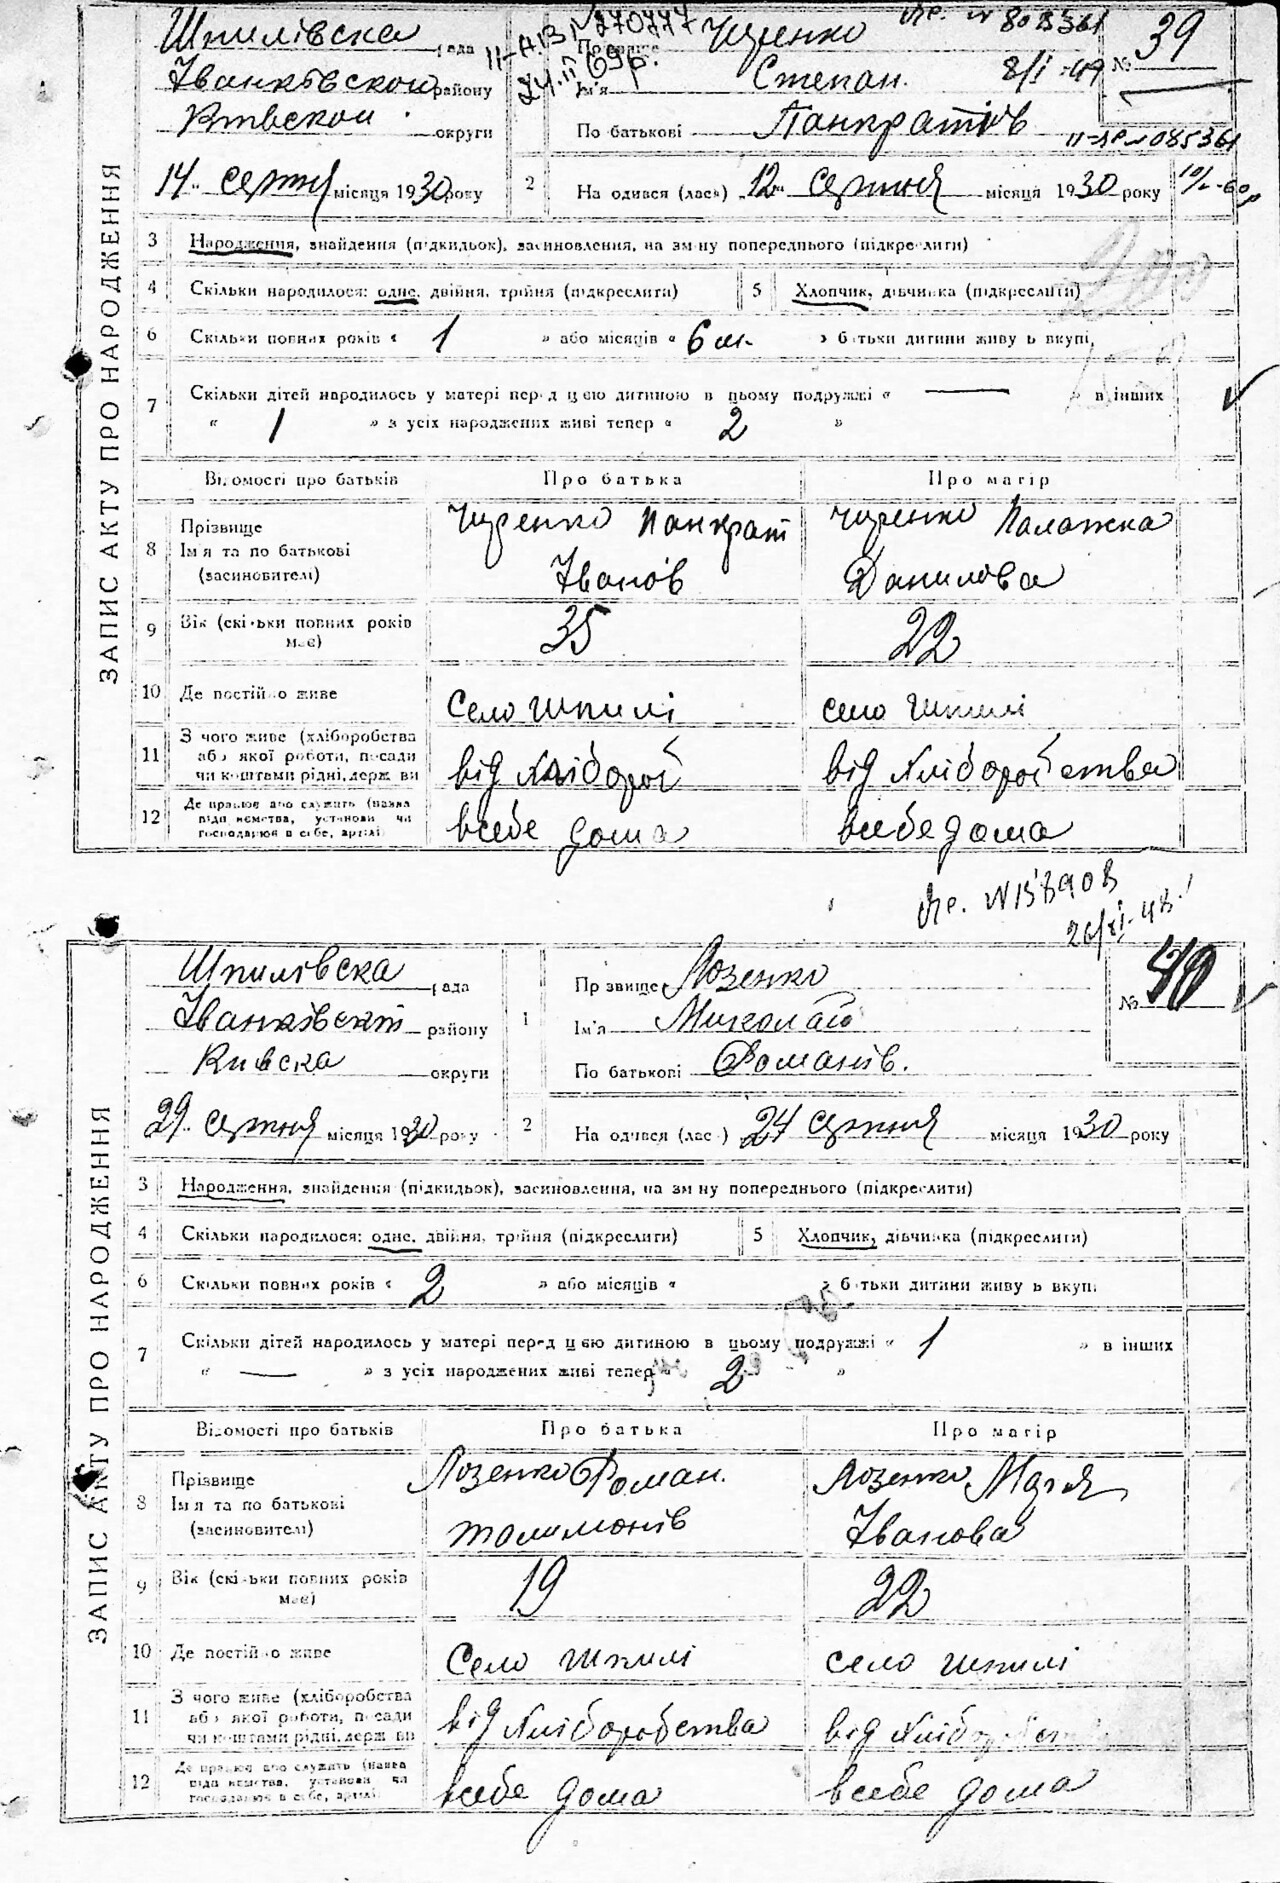 ЗАПИС АКТУ ПРО НАРОДЖЕННЯ
Шпилівска рада
Іванківского району
Київскои округи
14 серпня місяця 1930 року
II-А.ВІ №270777
24.II 69р.
Прізвище Цуренко
Ім'я Степан.
По батькові Панкратів
8/I-49
№ 39
II-АР №085361
10/ -60р
2 На одився (лась) 12 серпня місяця 1930 року
3 Народження, знайдення (підкидьок), засиновлення, на зміну попереднього (підкреслити)
4 Скільки народилося: одне, двійня, трійня (підкреслити)
5 Хлопчик, дівчинка (підкреслити)
6 Скільки повних років « 1 » або місяців « 6 м. » батьки дитини живуть вкупі,
7 Скільки дітей народилось у матері перед цією дитиною в цьому подружжі « — » в інших
« 1 » з усіх народжених живі тепер « 2 »
Відомості про батьків Про батька Про матір
8 Прізвище Ім'я та по батькові (засиновителі)
Цуренко Панкрат Іванов
Цуренко Палажка Данилова
9 Вік (скільки повних років має) 35 22
10 Де постійно живе село Шпилі село Шпилі
11 З чого живе (хліборобства або якої роботи, посади чи коштами рідні, держави
від хлібороб від хліборобства
12 Де працює або служить (назва підприємства, установи чи господарює в себе, артілі)
всебе дома всебе дома
ЗАПИС АКТУ ПРО НАРОДЖЕННЯ
Шпилівска рада
Іванківскій району
Київска округи
29 серпня місяця 1930 року
1 Прізвище Лозенко
Ім'я Миколай
По батькові Романів.
№ 40
2 На одився (лась) 24 серпня місяця 1930 року
3 Народження, знайдення (підкидьок), засиновлення, на зміну попереднього (підкреслити)
4 Скільки народилося: одне, двійня, трійня (підкреслити)
5 Хлопчик, дівчинка (підкреслити)
6 Скільки повних років « 2 » або місяців « » батьки дитини живуть вкупі
7 Скільки дітей народилось у матері перед цією дитиною в цьому подружжі « 1 » в інших
« — » з усіх народжених живі тепер « 2 »
Відомості про батьків Про батька Про матір
8 Прізвище Ім'я та по батькові (засиновителі)
Лозенко Роман. Толимонів
Лозенко Марія Іванова
9 Вік (скільки повних років має) 19 22
10 Де постійно живе село Шпилі село Шпилі
11 З чого живе (хліборобства або якої роботи, посади чи коштами рідні, держави
від хліборобства від
12 Де працює або служить (назва підприємства, установи чи господарює в себе, артілі)
всебе дома всебе дома